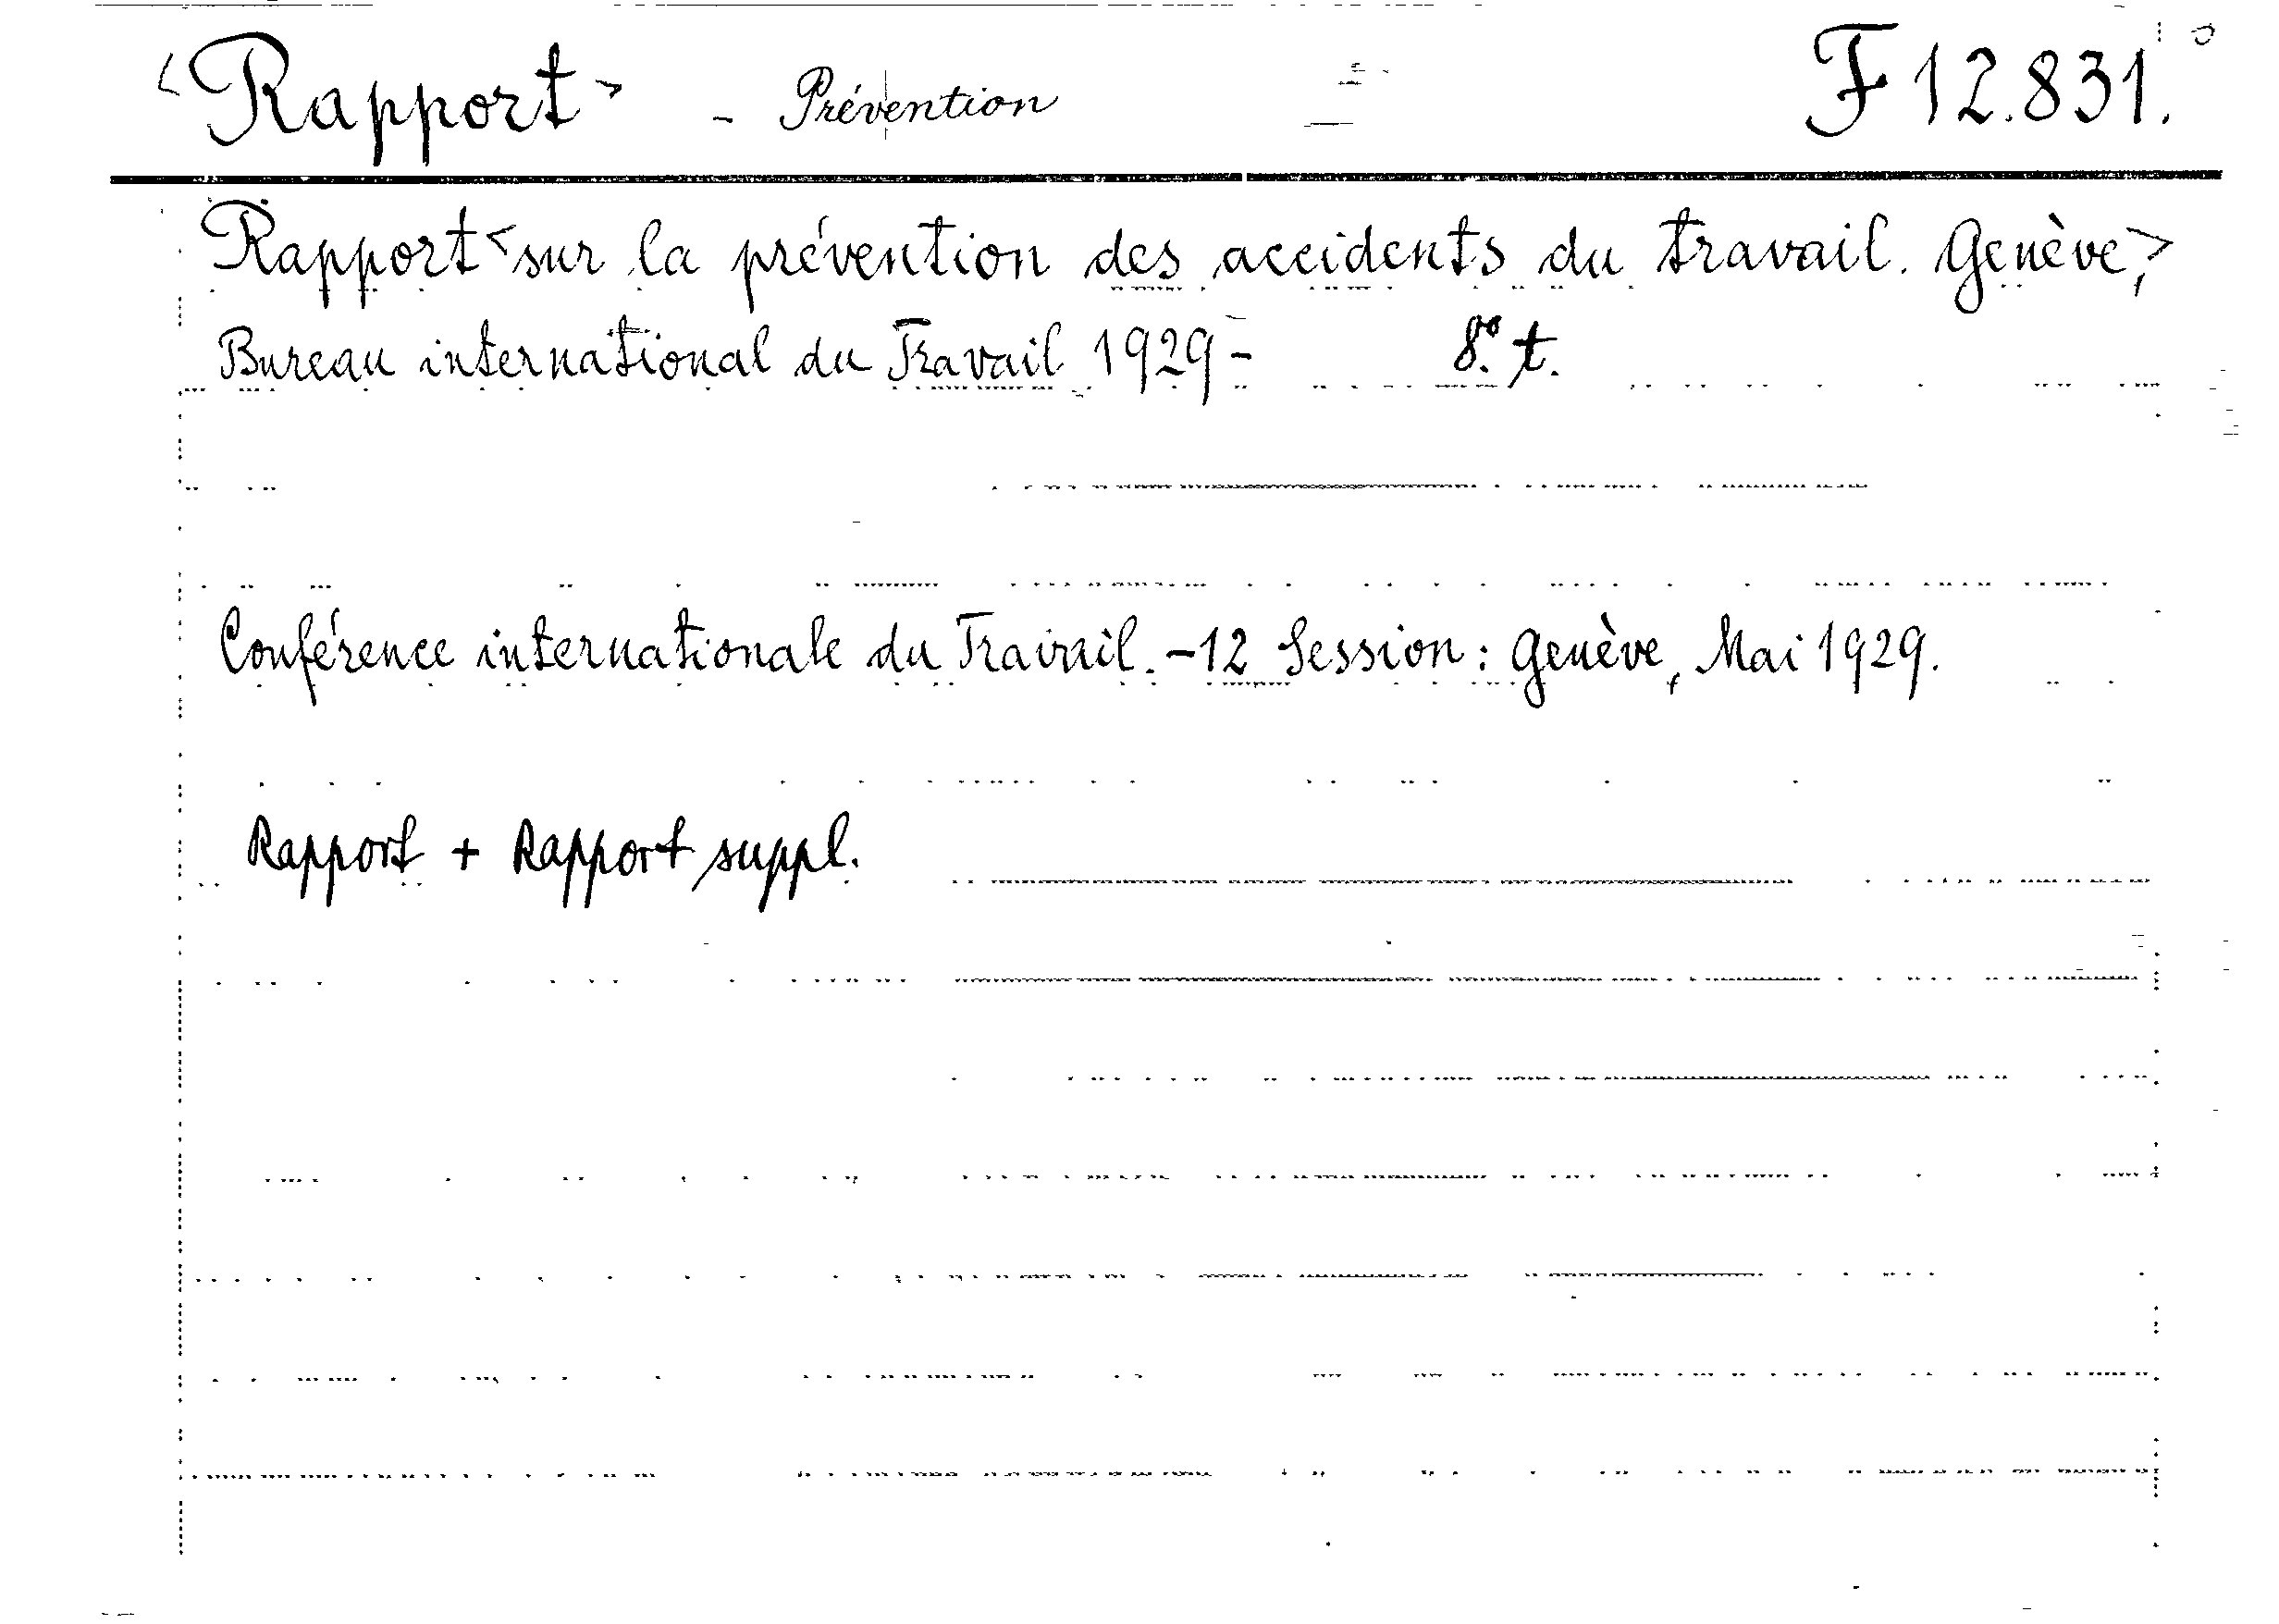 <Rapport> - Prévention F 12.831.
Rapport <sur la prévention des accidents du travail. Genève>,
Bureau international du Travail 1929- 8º. t.
Conférence internationale du Travail. -12 Session: Genève, Mai 1929.
Rapport + Rapport suppl.